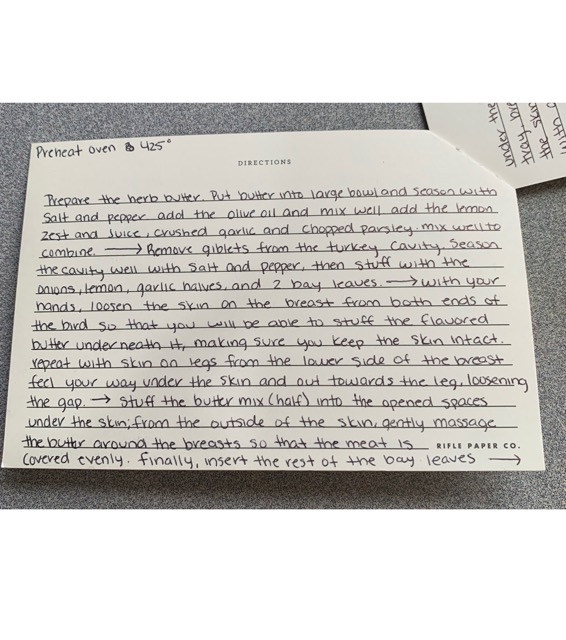 Preheat oven to 425°
DIRECTIONS
Prepare the herb butter. Put butter into large bowl and season with
salt and pepper add the olive oil and mix well add the lemon
zest and juice, crushed garlic and chopped parsley. mix well to
combine. → Remove giblets from the turkey cavity. Season
the cavity well with salt and pepper, then stuff with the
onions, lemon, garlic halves, and 2 bay leaves. → with your
hands, loosen the skin on the breast from both ends of
the bird so that you will be able to stuff the flavored
butter underneath it, making sure you keep the skin intact.
repeat with skin on legs from the lower side of the breast
feel your way under the skin and out towards the leg, loosening
the gap. → Stuff the butter mix (half) into the opened spaces
under the skin; from the outside of the skin, gently massage
the butter around the breasts so that the meat is
RIFLE PAPER CO.
covered evenly. finally, insert the rest of the bay leaves →
under the
the skin